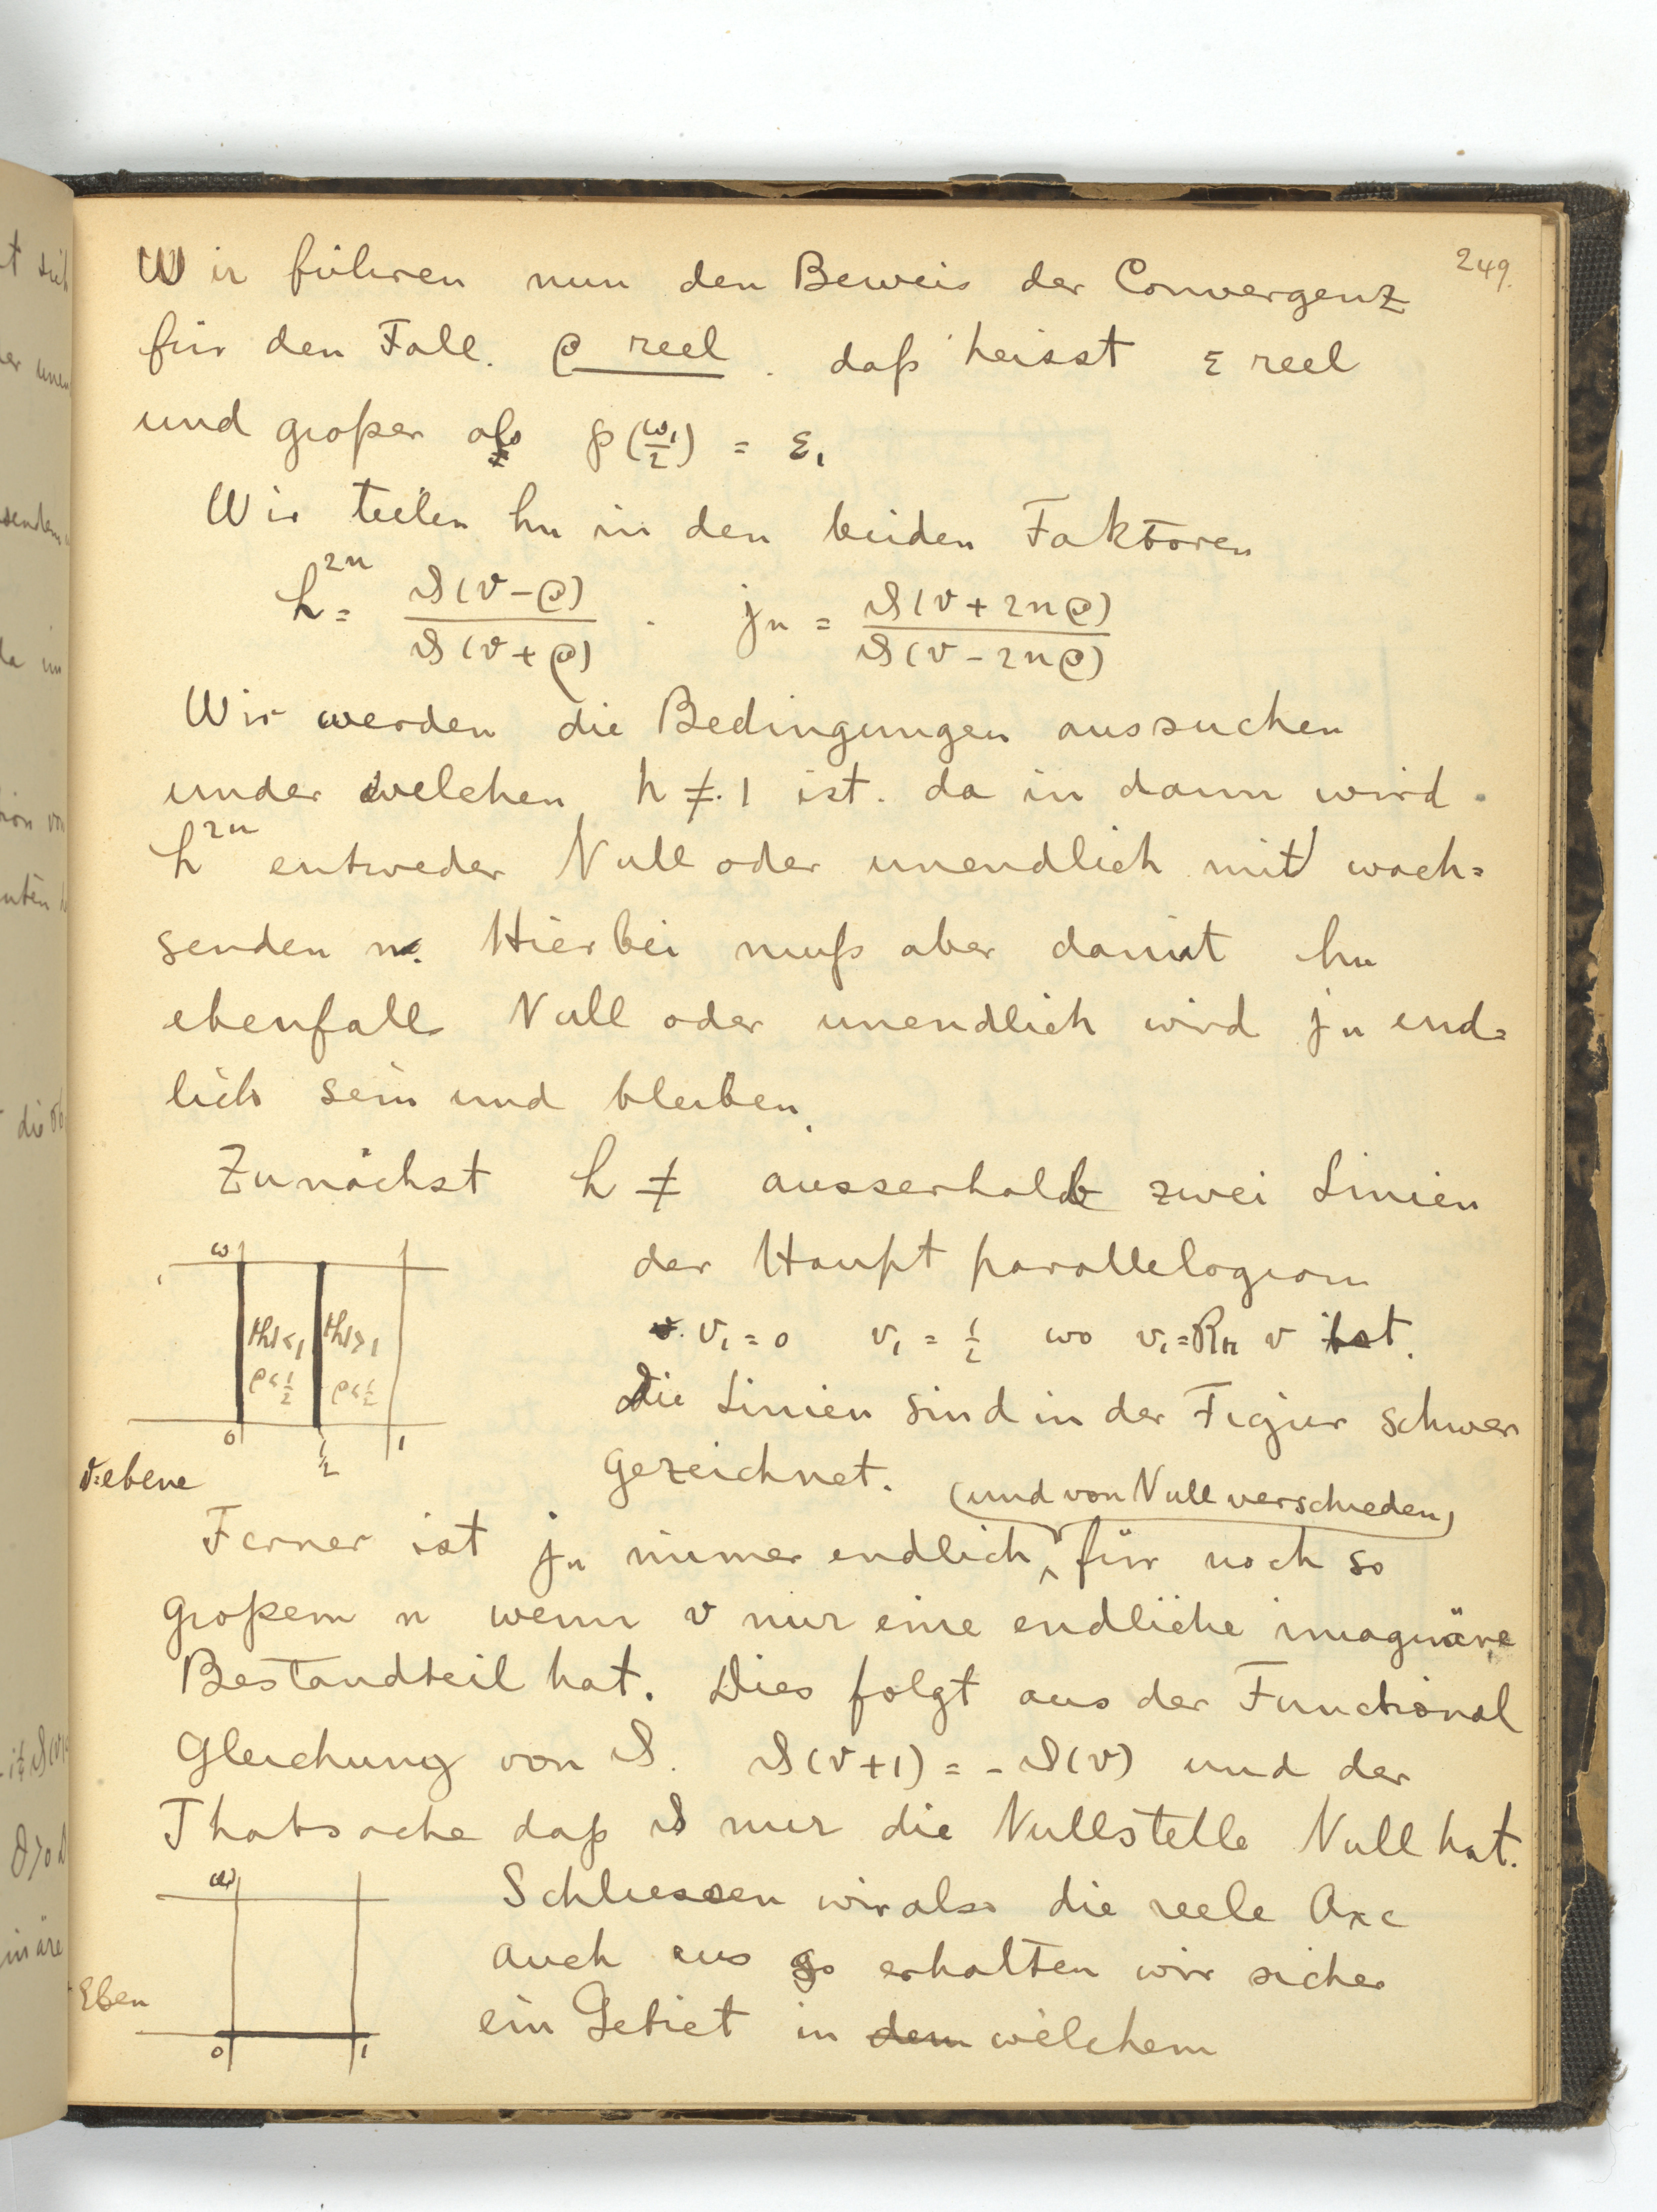 249.
Wir führen nun den Beweis der Convergenz
für den Fall. ρ reel . daß heisst ε reel
und großer als ℘(ω₁/2) = ε₁
Wir teilen hn in den beiden Faktoren
h²ⁿ = ϑ(v-ρ)/ϑ(v+ρ) . jn = ϑ(v+2nρ)/ϑ(v-2nρ)
Wir werden die Bedingungen aussuchen
under welchen h ≠ 1 ist. da in dann wird
h²ⁿ entweder Null oder unendlich mit wach=
senden n. Hierbei muß aber damit hn
ebenfalls Null oder unendlich wird jn end=
lich sein und bleiben.
Zunächst h ≠ ausserhalb zwei Linien
der Haupt parallelogram
v₁ = 0 v₁ = 1/2 wo v₁ = R v ist.
Die Linien sind in der Figur schwer
gezeichnet.
ω
|h|<1 |h|>1
ρ<1/2 ρ<1/2
0 1/2 1
v=ebene
(und von Null verschieden)
Ferner ist jn immer endlich, für noch so
großem n wenn v nur eine endliche imaginäre
Bestandteil hat. Dies folgt aus der Functional
Gleichung von ϑ. ϑ(v+1) = -ϑ(v) und der
Thatsache daß ϑ nur die Nullstelle Null hat.
Schliessen wir also die reele Axe
auch aus so erhalten wir sicher
ein Gebiet in dem welchem
ω
Eben
0 1